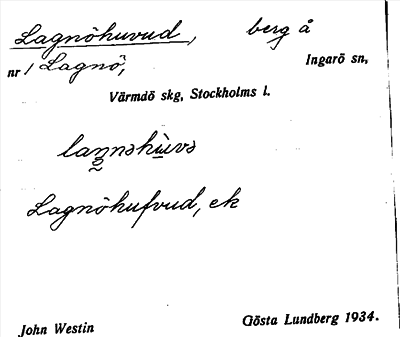 Lagnöhuvud, berg å
nr 1 Lagnö, Ingarö sn,
Värmdö skg, Stockholms l.
Lagnöhufvud, ek
John Westin Gösta Lundberg 1934.